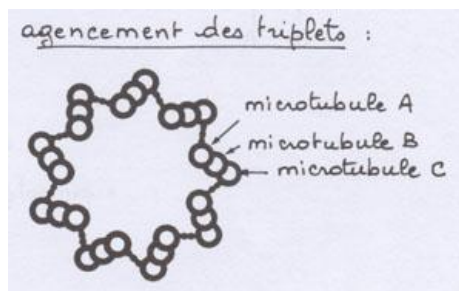 agencement des triplets :
microtubule A
microtubule B
microtubule C